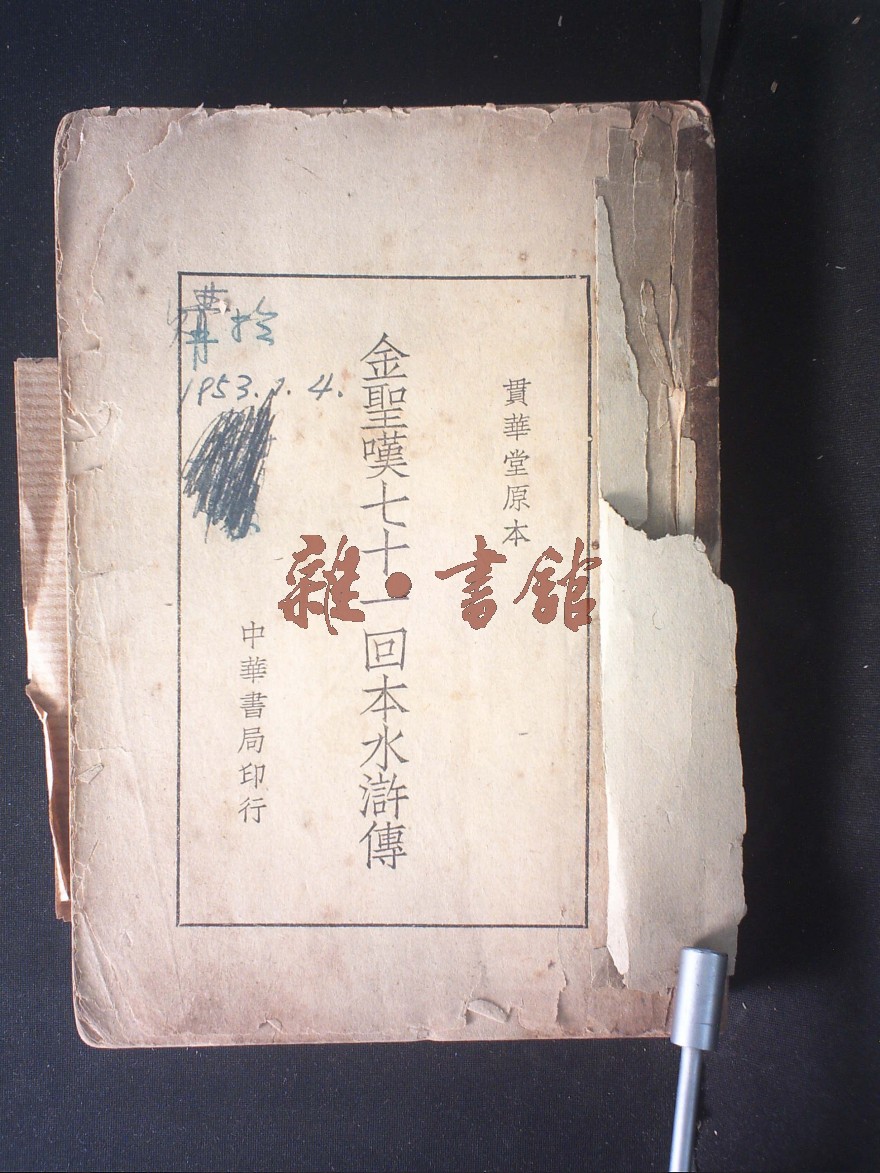 貫華堂原本
金聖嘆七十一回本水滸傳
中華書局印行
購於
1953.1.4.
雜·書館